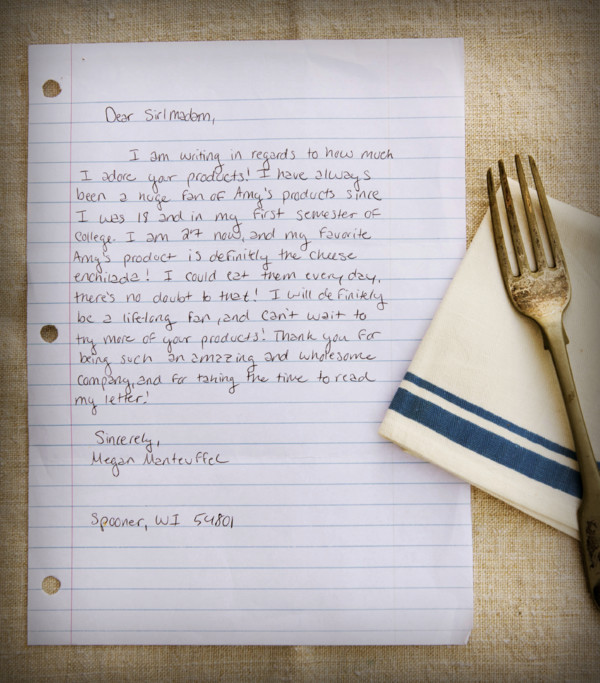 Dear Sir/madam,
I am writing in regards to how much
I adore your products! I have always
been a huge fan of Amy's products since
I was 18 and in my first semester of
college. I am 27 now, and my favorite
Amy's product is definitly the cheese
enchilada! I could eat them everyday,
there's no doubt to that! I will definitely
be a life-long fan, and can't wait to
try more of your products! Thank you for
being such an amazing and wholesome
company, and for taking the time to read
my letter!
Sincerely,
Megan Manteuffel
Spooner, WI 54801